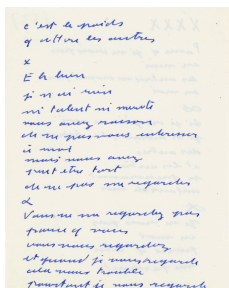 c'est le poids
des autres
x
Eh bien
je n'ai rien
ni talent ni mérite
vous avez raison
de ne pas vous intéresser
à moi
mais vous avez
peut être tort
de ne pas me regarder
Vous ne me regardez pas
parce que vous
vous vous regardez
et quand je vous regarde
cela vous trouble
pourtant je vous regarde